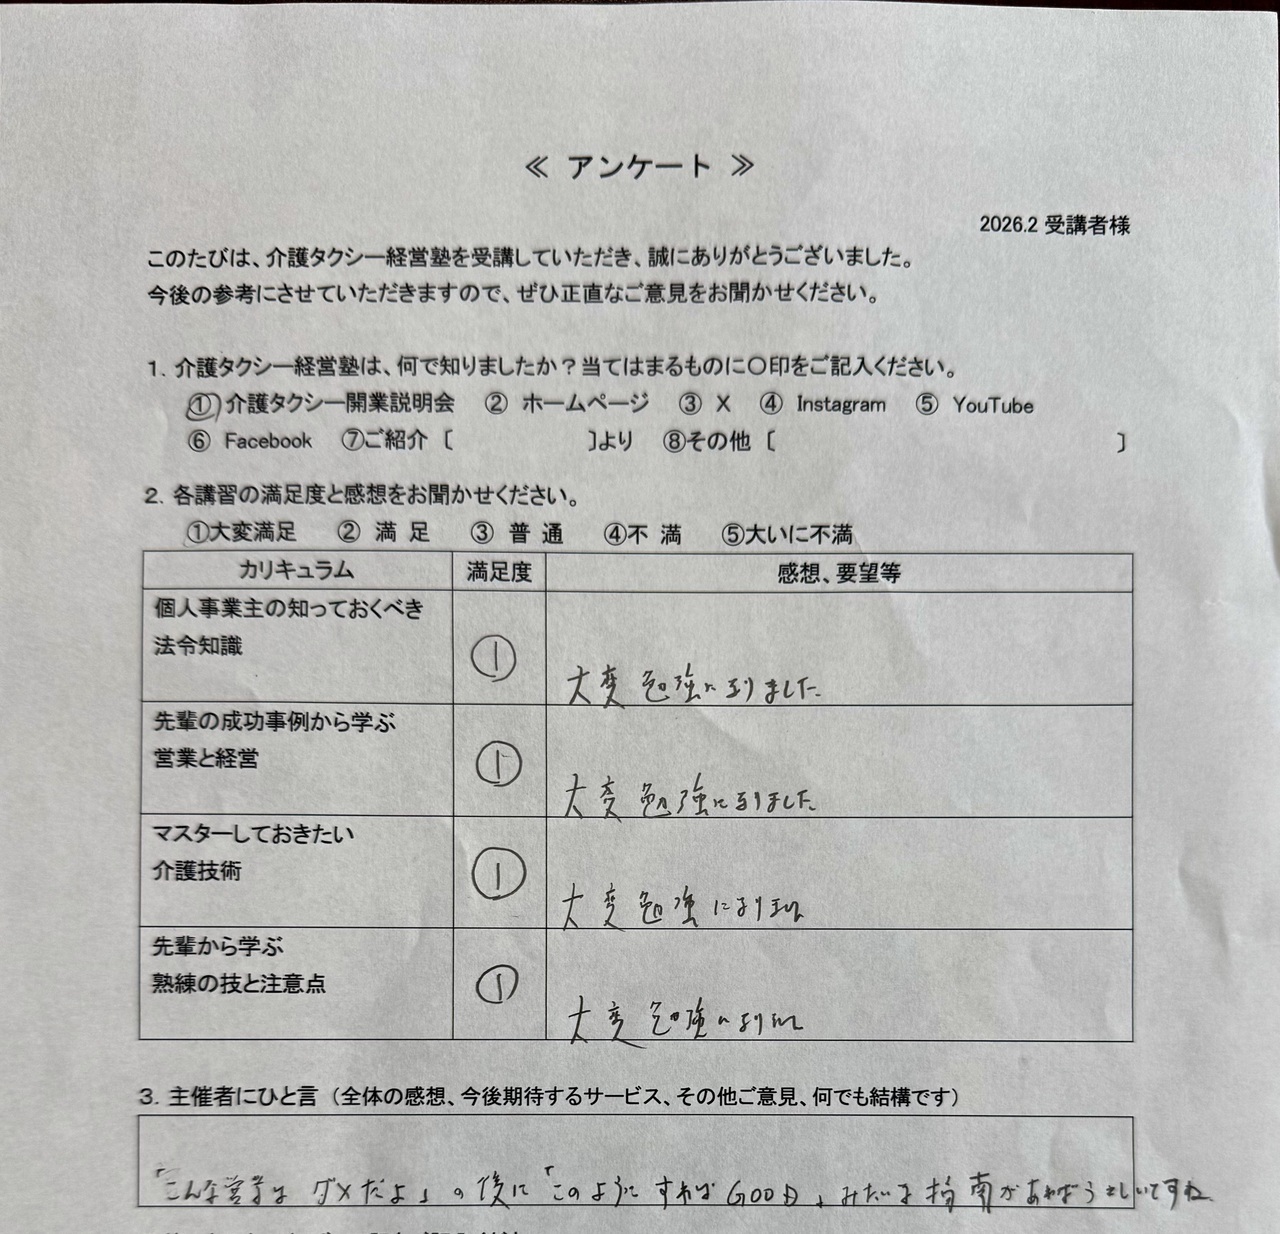 ≪ アンケート ≫
2026.2 受講者様
このたびは、介護タクシー経営塾を受講していただき、誠にありがとうございました。
今後の参考にさせていただきますので、ぜひ正直なご意見をお聞かせください。
1. 介護タクシー経営塾は、何で知りましたか？当てはまるものに〇印をご記入ください。
① 介護タクシー開業説明会 ② ホームページ ③ X ④ Instagram ⑤ YouTube
⑥ Facebook ⑦ご紹介〔 〕より ⑧その他〔 〕
2. 各講習の満足度と感想をお聞かせください。
①大変満足 ② 満 足 ③ 普 通 ④不 満 ⑤大いに不満
カリキュラム 満足度 感想、要望等
個人事業主の知っておくべき
法令知識 ① 大変勉強になりました。
先輩の成功事例から学ぶ
営業と経営 ① 大変勉強になりました。
マスターしておきたい
介護技術 ① 大変勉強になりました
先輩から学ぶ
熟練の技と注意点 ① 大変勉強になりました
3. 主催者にひと言（全体の感想、今後期待するサービス、その他ご意見、何でも結構です）
「こんな営業はダメだよ」の後に「このようにすればGOOD」みたいな指南があればうれしいですね。